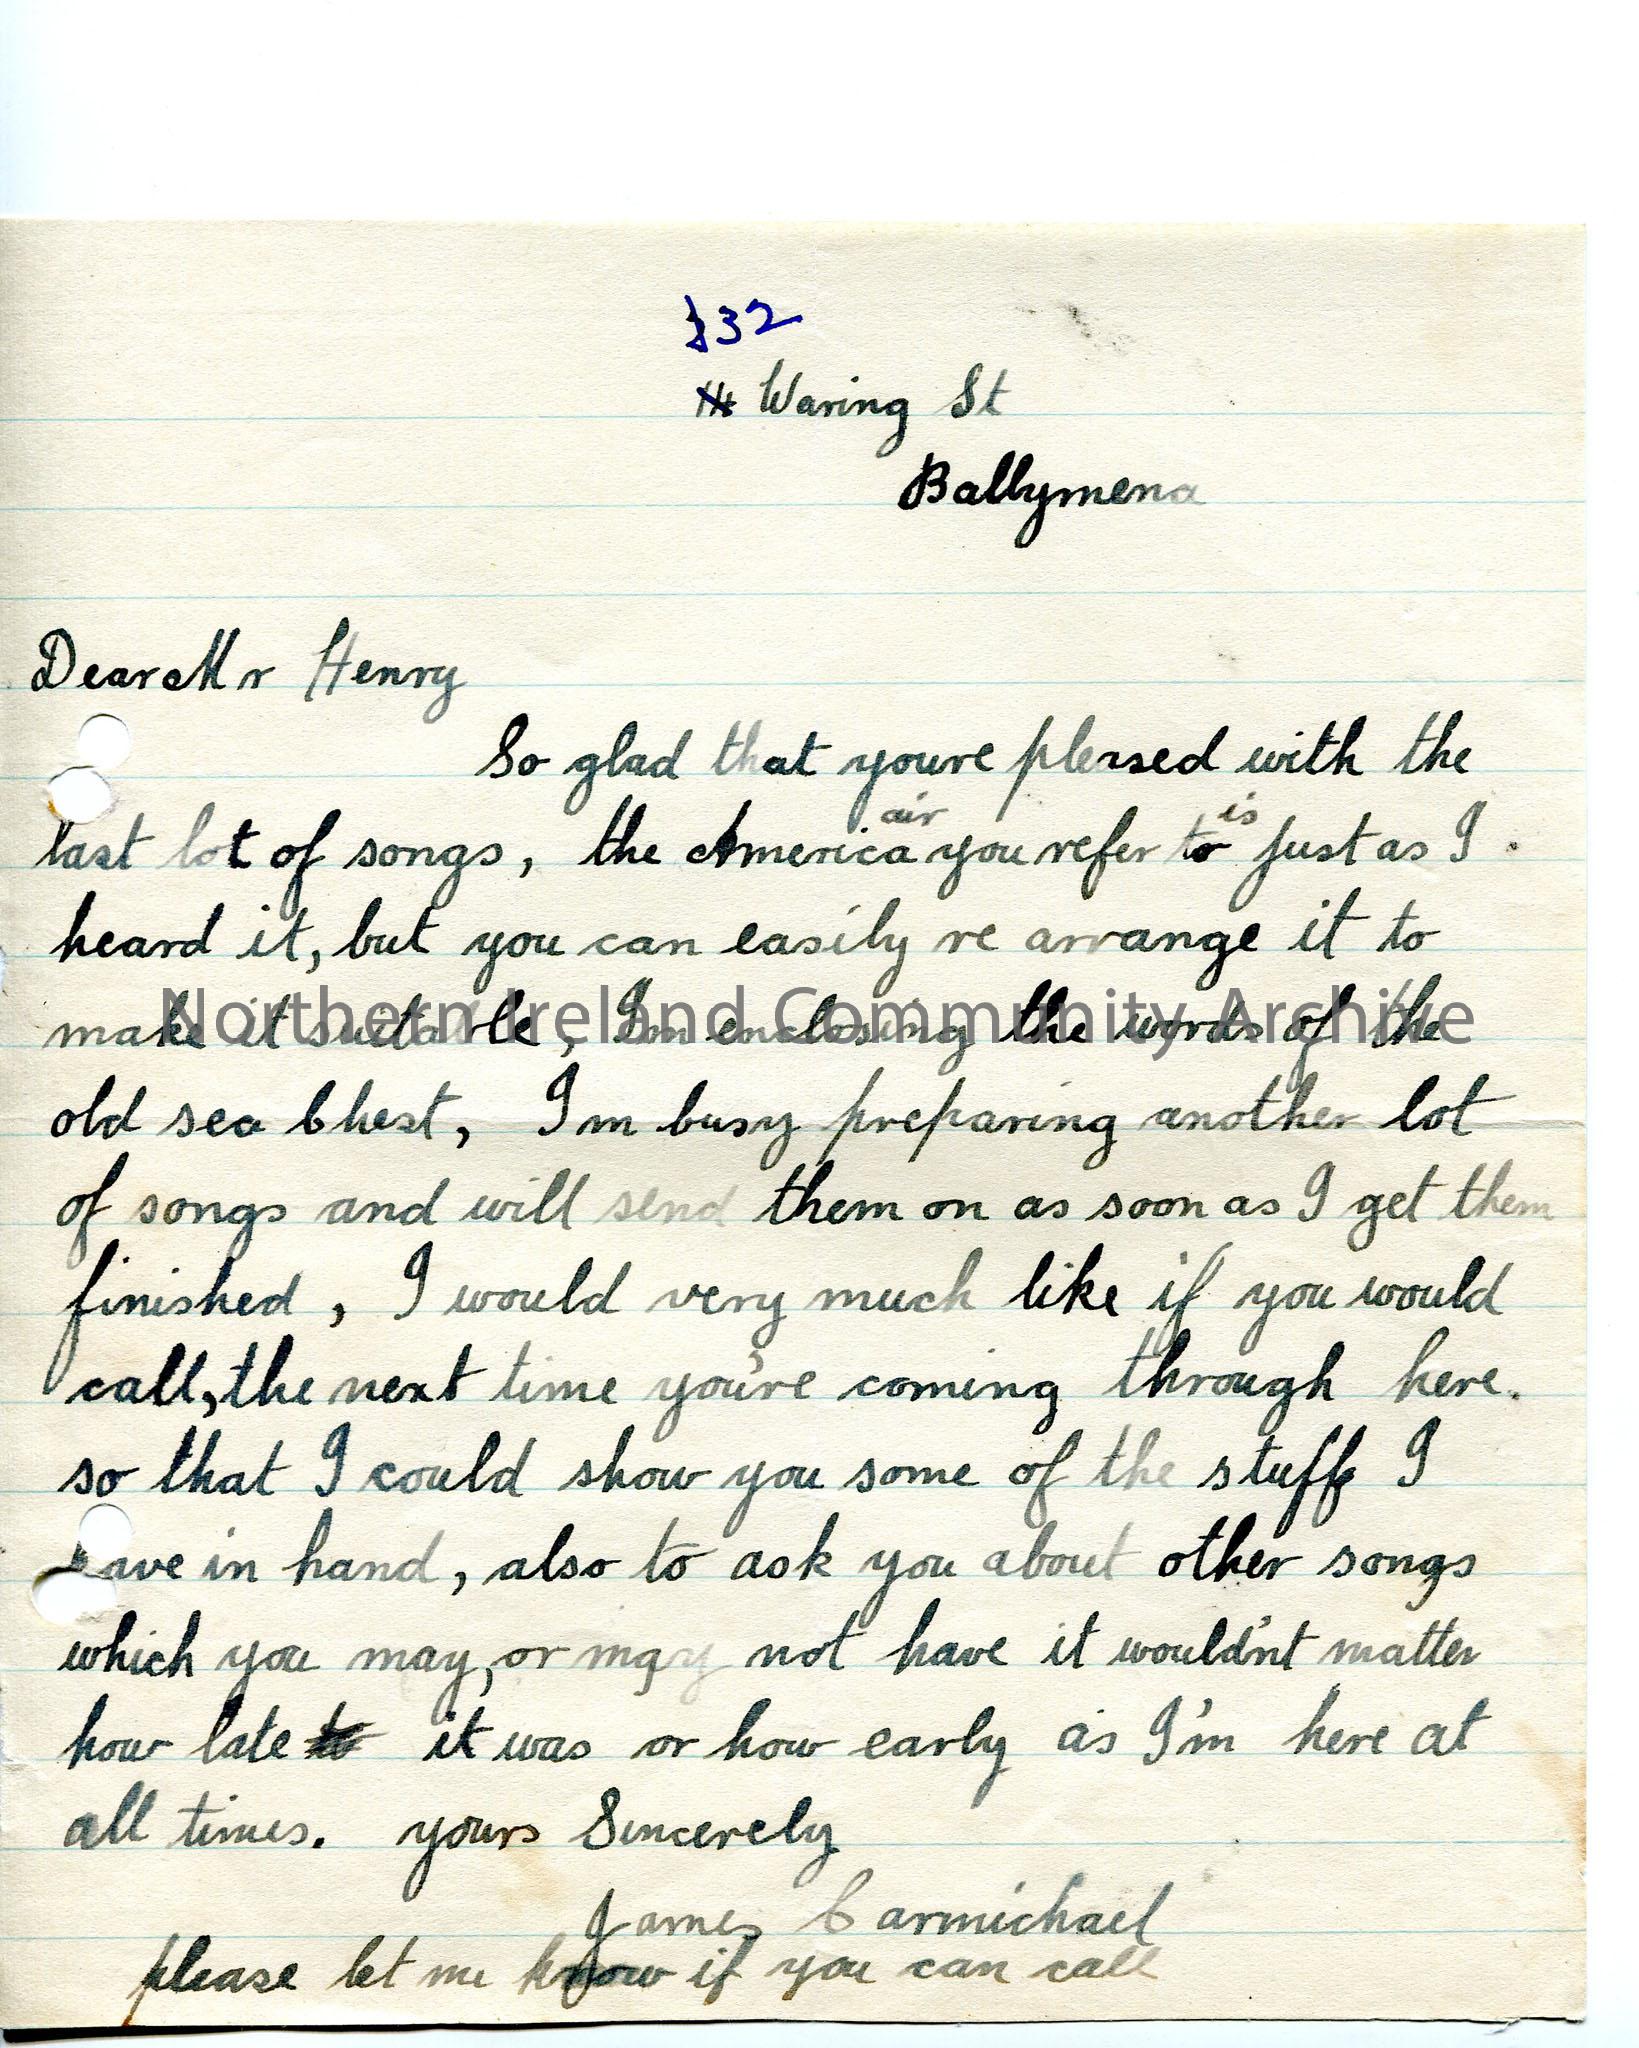 132
Waring St
Ballymena
Dear Mr Henry
So glad that youre pleased with the
air is
last lot of songs, the America you refer to just as I
heard it, but you can easily re arrange it to
make it suitable, I'm enclosing the words of the
Northern Ireland Community Archive
old sea Chest, I'm busy preparing another lot
of songs and will send them on as soon as I get them
finished, I would very much like if you would
call, the next time you're coming through here.
so that I could show you some of the stuff I
have in hand, also to ask you about other songs
which you may, or may not have it would'nt matter
how late it was or how early as I'm here at
all times. yours Sincerely
James Carmichael
please let me know if you can call